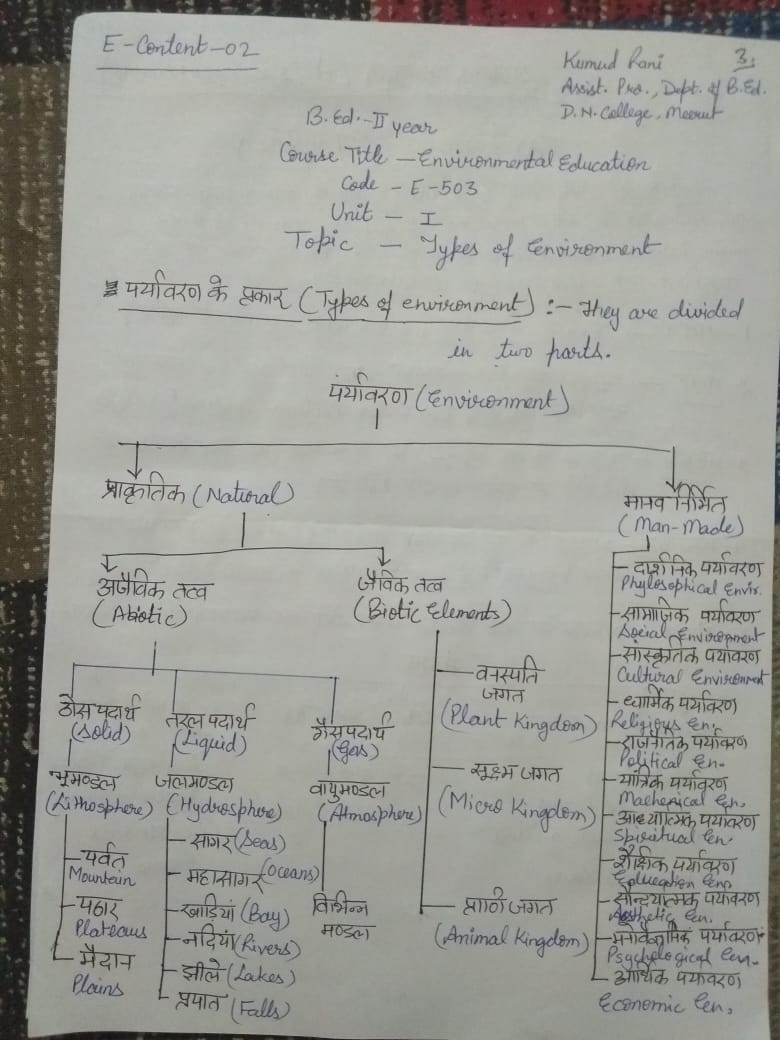 E-Content-02
3.
Kumud Rani
Assist. Pro., Dept. of B.Ed.
D.N. College, Meerut
B.Ed.-II year
Course Title – Environmental Education
Code - E-503
Unit - I
Topic - Types of Environment
पर्यावरण के प्रकार (Types of environment) :- They are divided
in two parts.
पर्यावरण (Environment)
प्राकृतिक (Natural)
मानव निर्मित
(Man-Made)
अजैविक तत्व
(Abiotic)
जैविक तत्व
(Biotic Elements)
ठोस पदार्थ
(Solid)
भूमण्डल
(Lithosphere)
पर्वत
Mountain
पठार
Plateaus
मैदान
Plains
तरल पदार्थ
(Liquid)
जलमण्डल
(Hydrosphere)
सागर (Seas)
महासागर (Oceans)
खाड़ियां (Bay)
नदियां (Rivers)
झीलें (Lakes)
प्रपात (Falls)
गैस पदार्थ
(Gas)
वायुमण्डल
(Atmosphere)
विभिन्न
मण्डल
वनस्पति
जगत
(Plant Kingdom)
सूक्ष्म जगत
(Micro Kingdom)
प्राणि जगत
(Animal Kingdom)
दार्शनिक पर्यावरण
Phylosophical Envir.
सामाजिक पर्यावरण
Social Environment
सांस्कृतिक पर्यावरण
Cultural Environment
धार्मिक पर्यावरण
Religious En.
राजनैतिक पर्यावरण
Political En.
यांत्रिक पर्यावरण
Machenical En.
आध्यात्मिक पर्यावरण
Spiritual En.
शैक्षिक पर्यावरण
Education En.
सौन्दर्यात्मक पर्यावरण
Aesthetic En.
मनोवैज्ञानिक पर्यावरण
Psychological En.
आर्थिक पर्यावरण
Economic En.